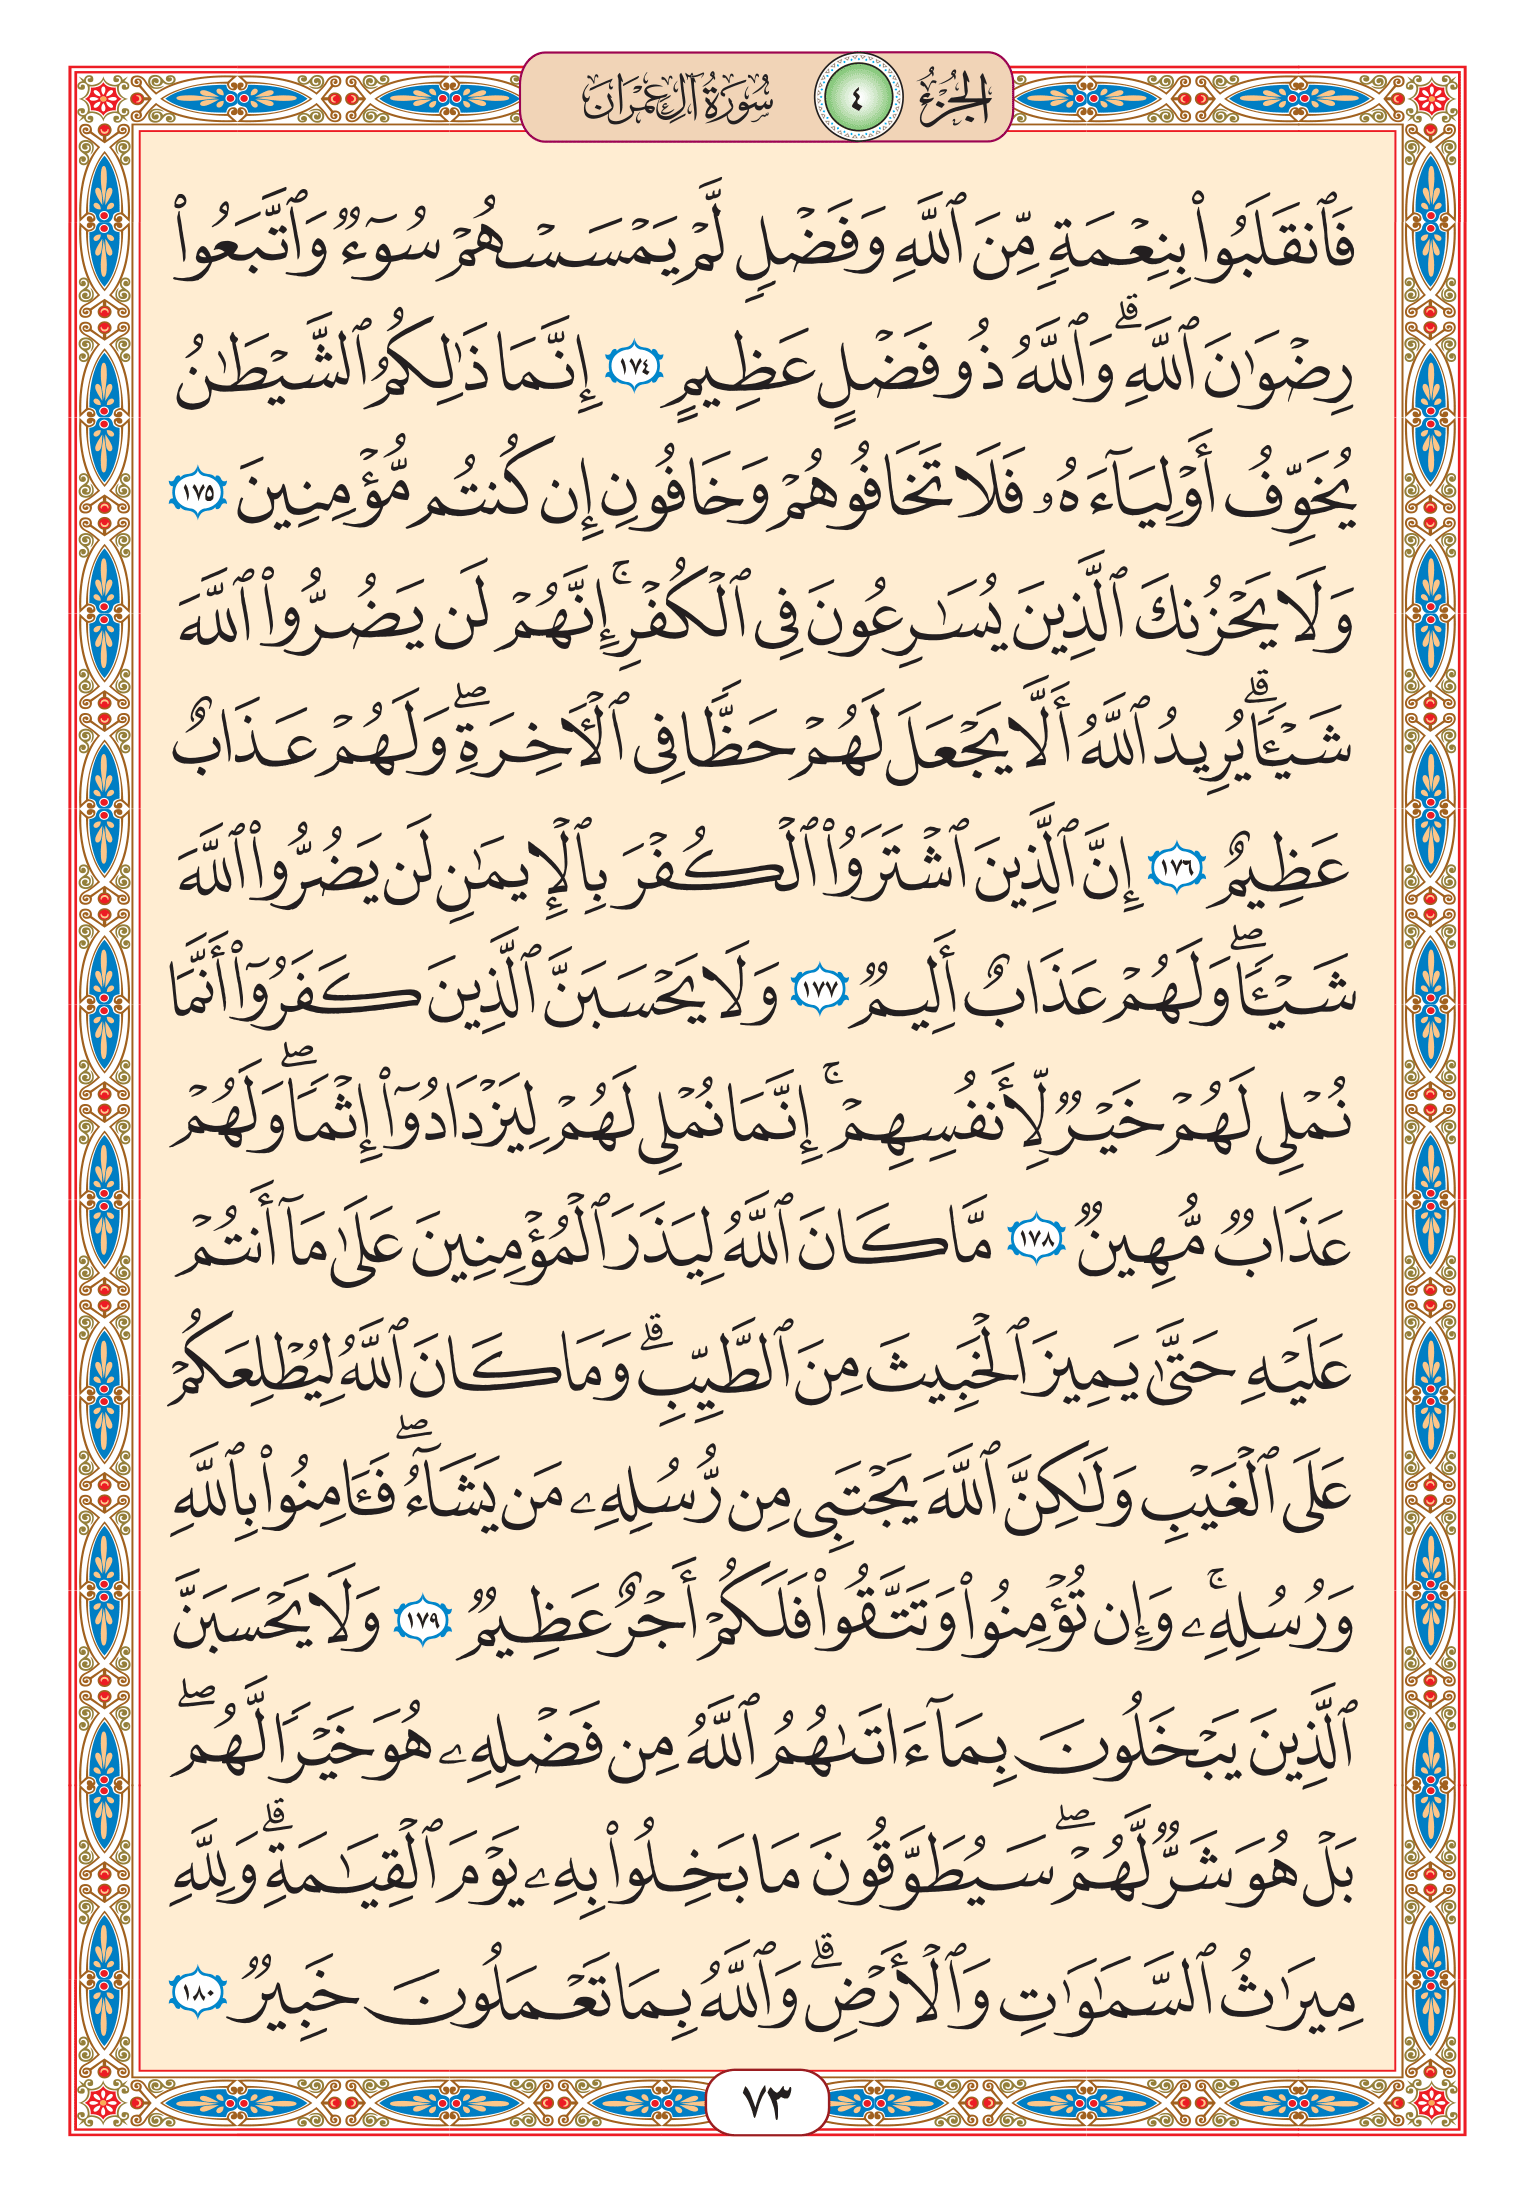 الجزء ٤ سورة آل عمران
فَٱنقَلَبُوا۟ بِنِعْمَةٍ مِّنَ ٱللَّهِ وَفَضْلٍ لَّمْ يَمْسَسْهُمْ سُوٓءٌ وَٱتَّبَعُوا۟
رِضْوَٰنَ ٱللَّهِ ۗ وَٱللَّهُ ذُو فَضْلٍ عَظِيمٍ ١٧٤ إِنَّمَا ذَٰلِكُمُ ٱلشَّيْطَٰنُ
يُخَوِّفُ أَوْلِيَآءَهُۥ فَلَا تَخَافُوهُمْ وَخَافُونِ إِن كُنتُم مُّؤْمِنِينَ ١٧٥
وَلَا يَحْزُنكَ ٱلَّذِينَ يُسَٰرِعُونَ فِى ٱلْكُفْرِ ۚ إِنَّهُمْ لَن يَضُرُّوا۟ ٱللَّهَ
شَيْـًٔا ۗ يُرِيدُ ٱللَّهُ أَلَّا يَجْعَلَ لَهُمْ حَظًّا فِى ٱلْـَٔاخِرَةِ ۖ وَلَهُمْ عَذَابٌ
عَظِيمٌ ١٧٦ إِنَّ ٱلَّذِينَ ٱشْتَرَوُا۟ ٱلْكُفْرَ بِٱلْإِيمَٰنِ لَن يَضُرُّوا۟ ٱللَّهَ
شَيْـًٔا ۖ وَلَهُمْ عَذَابٌ أَلِيمٌ ١٧٧ وَلَا يَحْسَبَنَّ ٱلَّذِينَ كَفَرُوٓا۟ أَنَّمَا
نُمْلِى لَهُمْ خَيْرٌ لِّأَنفُسِهِمْ ۚ إِنَّمَا نُمْلِى لَهُمْ لِيَزْدَادُوٓا۟ إِثْمًا ۖ وَلَهُمْ
عَذَابٌ مُّهِينٌ ١٧٨ مَّا كَانَ ٱللَّهُ لِيَذَرَ ٱلْمُؤْمِنِينَ عَلَىٰ مَآ أَنتُمْ
عَلَيْهِ حَتَّىٰ يَمِيزَ ٱلْخَبِيثَ مِنَ ٱلطَّيِّبِ ۗ وَمَا كَانَ ٱللَّهُ لِيُطْلِعَكُمْ
عَلَى ٱلْغَيْبِ وَلَٰكِنَّ ٱللَّهَ يَجْتَبِى مِن رُّسُلِهِۦ مَن يَشَآءُ ۖ فَـَٔامِنُوا۟ بِٱللَّهِ
وَرُسُلِهِۦ ۚ وَإِن تُؤْمِنُوا۟ وَتَتَّقُوا۟ فَلَكُمْ أَجْرٌ عَظِيمٌ ١٧٩ وَلَا يَحْسَبَنَّ
ٱلَّذِينَ يَبْخَلُونَ بِمَآ ءَاتَىٰهُمُ ٱللَّهُ مِن فَضْلِهِۦ هُوَ خَيْرًا لَّهُم ۖ
بَلْ هُوَ شَرٌّ لَّهُمْ ۖ سَيُطَوَّقُونَ مَا بَخِلُوا۟ بِهِۦ يَوْمَ ٱلْقِيَٰمَةِ ۗ وَلِلَّهِ
مِيرَٰثُ ٱلسَّمَٰوَٰتِ وَٱلْأَرْضِ ۗ وَٱللَّهُ بِمَا تَعْمَلُونَ خَبِيرٌ ١٨٠
٧٣